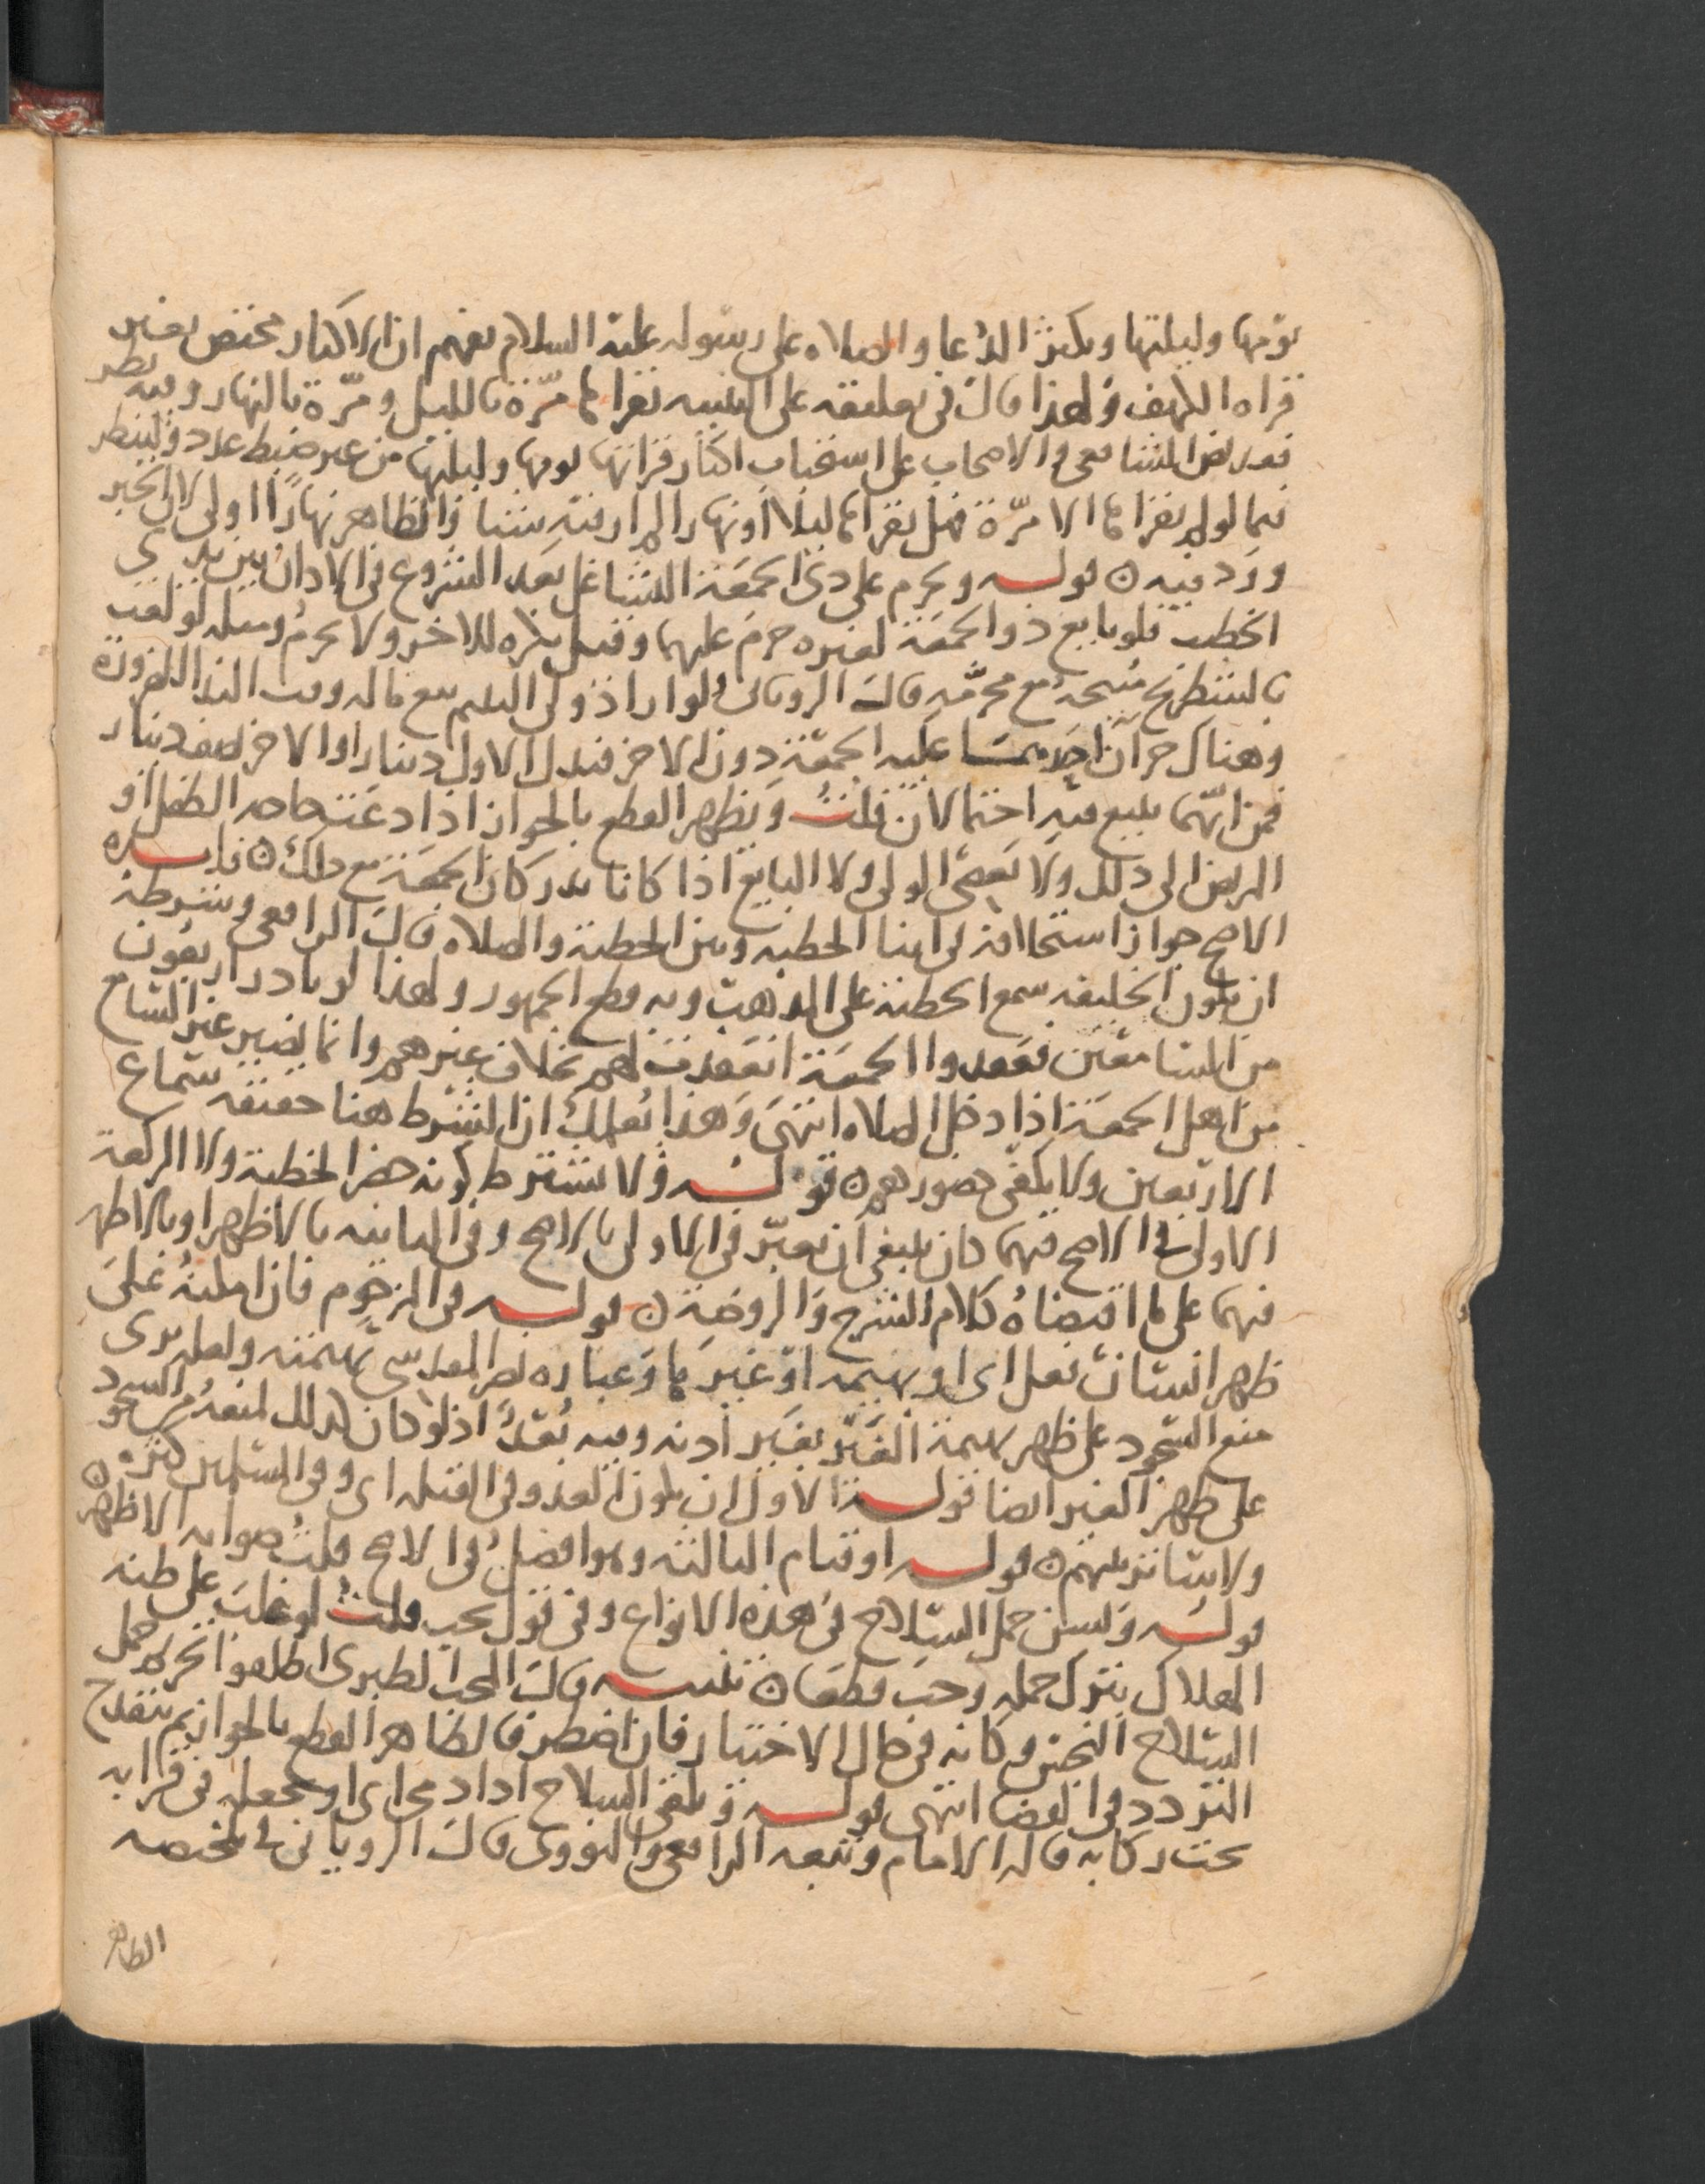 يومها وليلتها ويكثر الدعا والصلاه على رسوله عليه السلام يفهم ان الاكثار مختص بغير
قراه الكهف ولهذا قال في تعليقه على التنبيه يقراها مرّة بالليل ومرّة بالنهار وفيه نظر
فقد نص الشافعي والاصحاب على استحباب اكثار قرائتها يومها وليلتها من غير ضبط عدد ولينظر
فيما لو لم يقراها الا مرّة فهل يقراها ليلا او نهارا لم ار فيه شيا والظاهر نهارًا اولى لان الخبر
ورد فيه ن قولـه ويحرم على ذي الجمعة التشاغل بعد الشروع في الاذان بين يدي
الخطيب فلو بايع ذو الجمعة لغيره حرم عليهما وقيل يكره للاخر ولا يحرم ومثله لو لعب
بالشطرنج مبيحه مع محرّمه قال الروياني ولو اراد ولي اليتيم بيع ماله وقت الندا للضرورة
وهناك حران احدهما عليه الجمعة دون الاخر فبذل الاول دينارا والاخر نصف دينار
فمن ايّهما يبيع فيه احتمالان قلت ويظهر القطع بالجواز اذا دعت حاجه الطفل او
المريض الى ذلك ولا يعصي الولي ولا البايع اذا كانا يدركان الجمعة مع ذلك ن
الاصح جواز استخلافه في اثنا الخطبه وبين الخطبة والصلاه قال الرافعي وشرطه
ان يكون الخليفه سمع الخطبة على المذهب وبه قطع الجمهور ولهذا لو بادر اربعون
من السامعين فعقدوا الجمعة انعقدت لهم بخلاف غيرهم وانما يصير غير السامع
من اهل الجمعة اذا دخل الصلاه انتهى وهذا يعلمك ان الشرط هنا حقيقه سماع
الاربعين ولا يكفي حضورهم ن قولـه ولا يشترط كونه حضر الخطبة ولا الركعة
الاولى في الاصح فيهما كان ينبغي ان يعبّر في الاولى بالاصح وفي الثانيه بالاظهر او بالاظهر
فيهما على ما اقتضاه كلام الشرح والروضة ن قولـه في المزحوم فان امكنه على
ظهر انسان فعل اي او بهيمه او غيرها وعباره نصر المقدسي بهيمته ولعله يرى
منع السجود على ظهر بهيمة الغير بغير اذنه وفيه بُعدٌ اذ لو كان كذلك لمنعه من السجود
على ظهر الغير ايضا قولـه الاول ان يكون العدو في القبله اي وفي المسلمين كثره
ولا ساتر بينهم ن قولـه او قيام الثالثه وهو افضل في الاصح قلت صوابه الاظهر ن
قولـه ويسن حمل السلاح في هذه الانواع وفي قول يجب قلت لو غلب على ظنه
الهلاك بترك حمله وجب قطعا ن تنبيـه قال المحب الطبري اطلقوا تحريم حمل
السلاح النجس وكانه في حال الاختيار فان اضطر فالظاهر القطع بالجواز ثم ينقدح
التردد في القضا انتهى قولـه ويلقي السلاح اذا دمي اي او يجعله في قرابه
تحت ركابه قاله الامام وتبعه الرافعي والنووي قال الروياني في تلخيصه
الظاهر